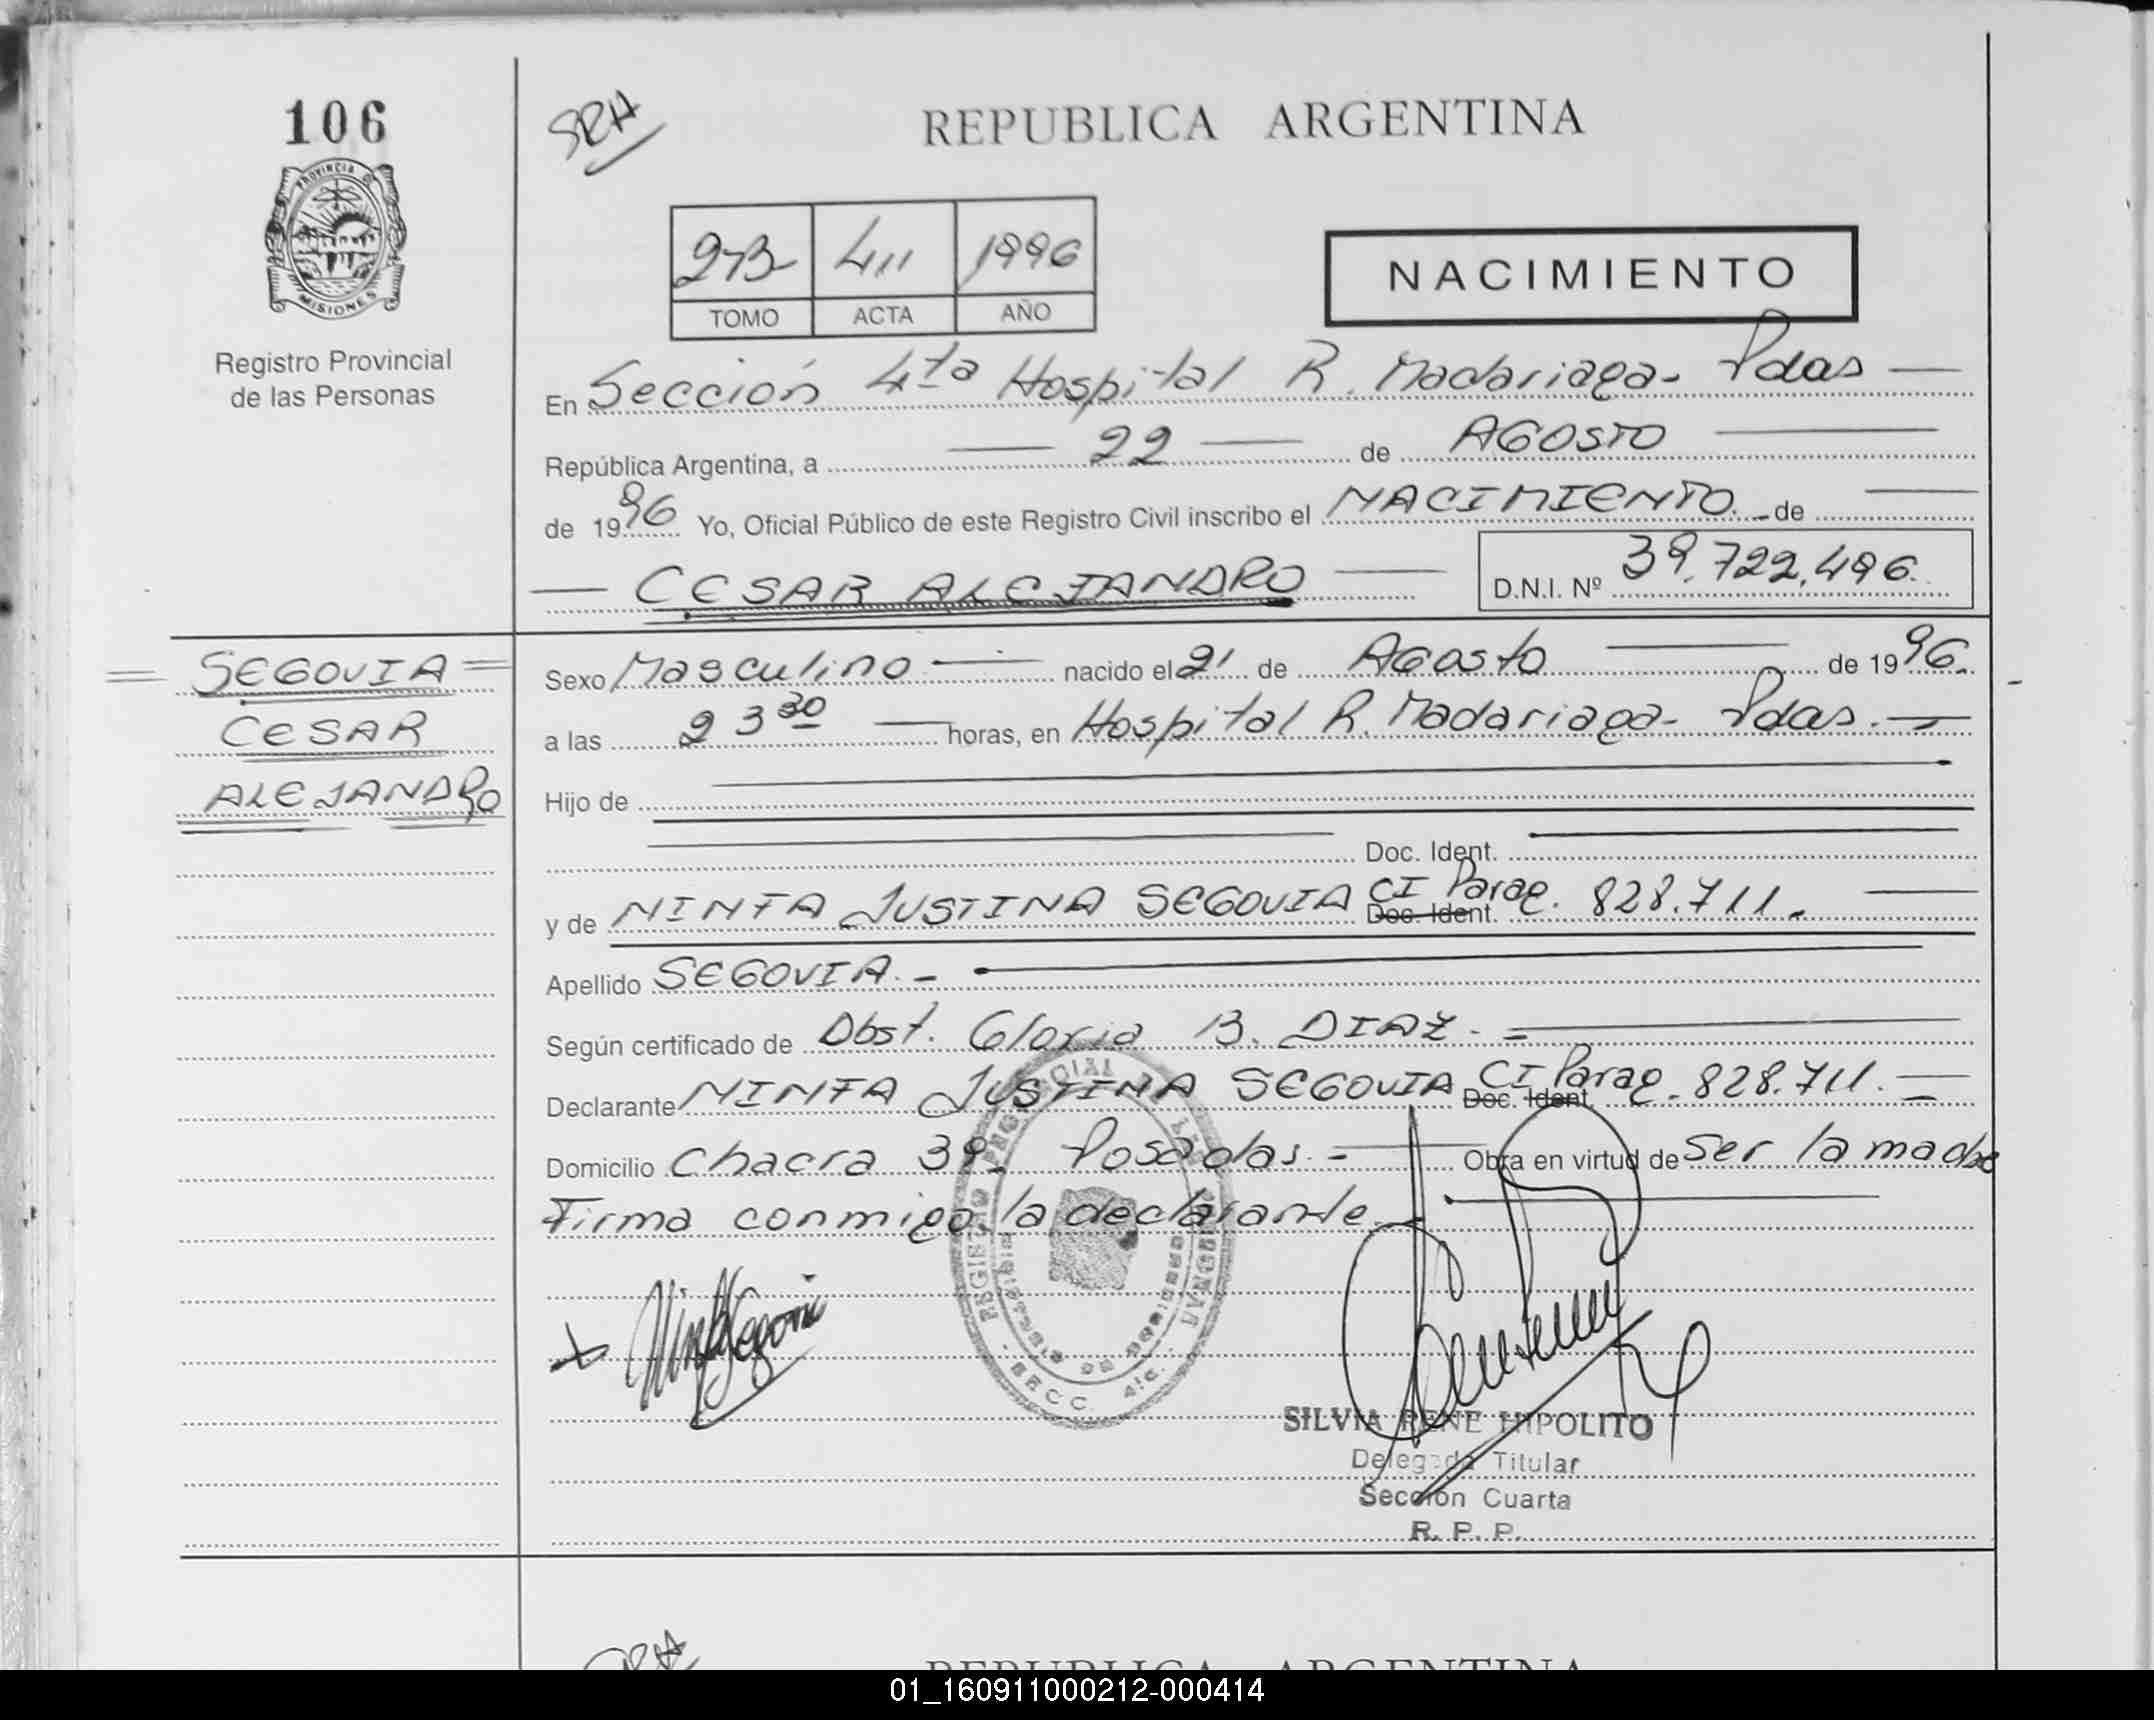 106
PROVINCIA D
MISIONES
Registro Provincial
de las Personas
SRH
REPUBLICA ARGENTINA
273 411 1996
TOMO ACTA AÑO
NACIMIENTO
En Sección 4ta Hospital R. Madariaga- Pdas
República Argentina, a 22 de AGOSTO
de 1996 Yo, Oficial Público de este Registro Civil inscribo el NACIMIENTO. de
CESAR ALEJANDRO D.N.I. Nº 39.722.496.
SEGOVIA
CESAR
ALEJANDRO
Sexo Masculino nacido el 21 de Agosto de 1996.
a las 23 30 horas, en Hospital R. Madariaga- Pdas.
Hijo de
Doc. Ident.
y de NINFA JUSTINA SEGOVIA Doc. Ident. CI Parag. 828.711.
Apellido SEGOVIA.-
Según certificado de Obst. Gloria B. DIAZ.-
Declarante NINFA JUSTINA SEGOVIA Doc. Ident. CI Parag. 828.711.
Domicilio Chacra 39- Posadas.- Obra en virtud de Ser la madre
Firma conmigo la declarante.
SECC. 4ta.
SILVIA RENE HIPOLITO
Delegada Titular
Sección Cuarta
R. P. P.
REPUBLICA ARGENTINA
01_160911000212-000414